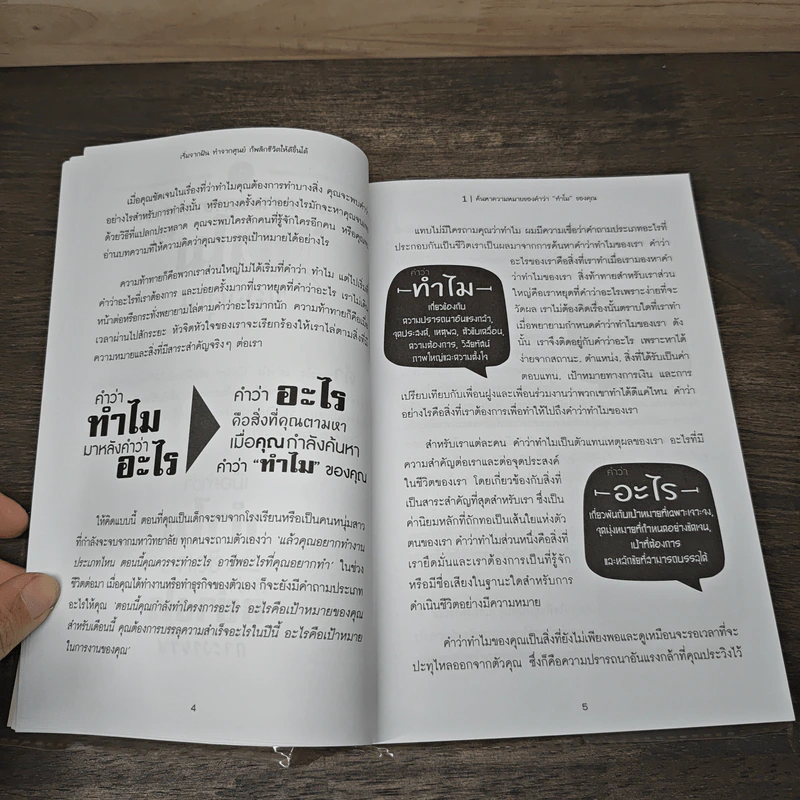 เริ่มจากฝัน ทำจากศูนย์ ก็พลิกชีวิตให้ดีขึ้นได้
เมื่อคุณชัดเจนในเรื่องที่ว่าทำไมคุณต้องการทำบางสิ่ง คุณจะพบคำว่า
อย่างไรสำหรับการทำสิ่งนั้น หรือบางครั้งคำว่าอย่างไรมักจะหาคุณจนพบ
ด้วยวิธีที่แปลกประหลาด คุณจะพบใครสักคนที่รู้จักใครอีกคน หรือคุณ
อ่านบทความที่ให้ความคิดว่าคุณจะบรรลุเป้าหมายได้อย่างไร
ความท้าทายก็คือพวกเราส่วนใหญ่ไม่ได้เริ่มที่คำว่า ทำไม แต่ไปเริ่มที่
คำว่าอะไรที่เราต้องการ และบ่อยครั้งมากที่เราหยุดที่คำว่าอะไร เราไม่เดิน
หน้าต่อหรือกระทั่งพยายามไล่ตามคำว่าอะไรมากนัก ความท้าทายก็คือเมื่อ
เวลาผ่านไปสักระยะ หัวจิตหัวใจของเราจะเรียกร้องให้เราไล่ตามสิ่งที่มี
ความหมายและสิ่งที่มีสาระสำคัญจริงๆ ต่อเรา
คำว่า
ทำไม
มาหลังคำว่า
อะไร
คำว่า อะไร
คือสิ่งที่คุณตามหา
เมื่อคุณกำลังค้นหา
คำว่า “ทำไม” ของคุณ
ให้คิดแบบนี้ ตอนที่คุณเป็นเด็กจะจบจากโรงเรียนหรือเป็นคนหนุ่มสาว
ที่กำลังจะจบจากมหาวิทยาลัย ทุกคนจะถามตัวเองว่า ‘แล้วคุณอยากทำงาน
ประเภทไหน ตอนนี้คุณควรจะทำอะไร อาชีพอะไรที่คุณอยากทำ’ ในช่วง
ชีวิตต่อมา เมื่อคุณได้ทำงานหรือทำธุรกิจของตัวเอง ก็จะยังมีคำถามประเภท
อะไรให้คุณ ‘ตอนนี้คุณกำลังทำโครงการอะไร อะไรคือเป้าหมายของคุณ
สำหรับเดือนนี้ คุณต้องการบรรลุความสำเร็จอะไรในปีนี้ อะไรคือเป้าหมาย
ในการงานของคุณ’
4
1 | ค้นหาความหมายของคำว่า “ทำไม” ของคุณ
แทบไม่มีใครถามคุณว่าทำไม ผมมีความเชื่อว่าคำถามประเภทอะไรที่
ประกอบกันเป็นชีวิตเราเป็นผลมาจากการค้นหาคำว่าทำไมของเรา คำว่า
อะไรของเราคือสิ่งที่เราทำเมื่อเรามองหาคำ
ว่าทำไมของเรา สิ่งท้าทายสำหรับเราส่วน
ใหญ่คือเราหยุดที่คำว่าอะไรเพราะง่ายที่จะ
วัดผล เราไม่ต้องคิดเรื่องนั้นตราบใดที่เราทำ
เมื่อพยายามกำหนดคำว่าทำไมของเรา ดัง
นั้น เราจึงติดอยู่กับคำว่าอะไร เพราะหาได้
ง่ายจากสถานะ, ตำแหน่ง, สิ่งที่ได้รับเป็นค่า
ตอบแทน, เป้าหมายทางการเงิน และการ
เปรียบเทียบกับเพื่อนฝูงและเพื่อนร่วมงานว่าพวกเขาทำได้ดีแค่ไหน คำว่า
อย่างไรคือสิ่งที่เราต้องการเพื่อทำให้ไปถึงคำว่าทำไมของเรา
คำว่า
ทำไม
เกี่ยวข้องกับ
ความปรารถนาอันแรงกล้า,
จุดประสงค์, เหตุผล, ตัวขับเคลื่อน,
ความต้องการ, วิสัยทัศน์
ภาพใหญ่และความตั้งใจ
สำหรับเราแต่ละคน คำว่าทำไมเป็นตัวแทนเหตุผลของเรา อะไรที่มี
ความสำคัญต่อเราและต่อจุดประสงค์
ในชีวิตของเรา โดยเกี่ยวข้องกับสิ่งที่
เป็นสาระสำคัญที่สุดสำหรับเรา ซึ่งเป็น
ค่านิยมหลักที่ถักทอเป็นเส้นใยแห่งตัว
ตนของเรา คำว่าทำไมส่วนหนึ่งคือสิ่งที่
เรายึดมั่นและเราต้องการเป็นที่รู้จัก
หรือมีชื่อเสียงในฐานะใดสำหรับการ
ดำเนินชีวิตอย่างมีความหมาย
คำว่า
อะไร
เกี่ยวพันกับเป้าหมายที่เฉพาะเจาะจง,
จุดมุ่งหมายที่กำหนดอย่างชัดเจน,
เป้าที่ต้องการ
และหลักชัยที่สามารถบรรลุได้
คำว่าทำไมของคุณเป็นสิ่งที่ยังไม่เพียงพอและดูเหมือนจะรอเวลาที่จะ
ปะทุไหลออกจากตัวคุณ ซึ่งก็คือความปรารถนาอันแรงกล้าที่คุณประวิงไว้
5